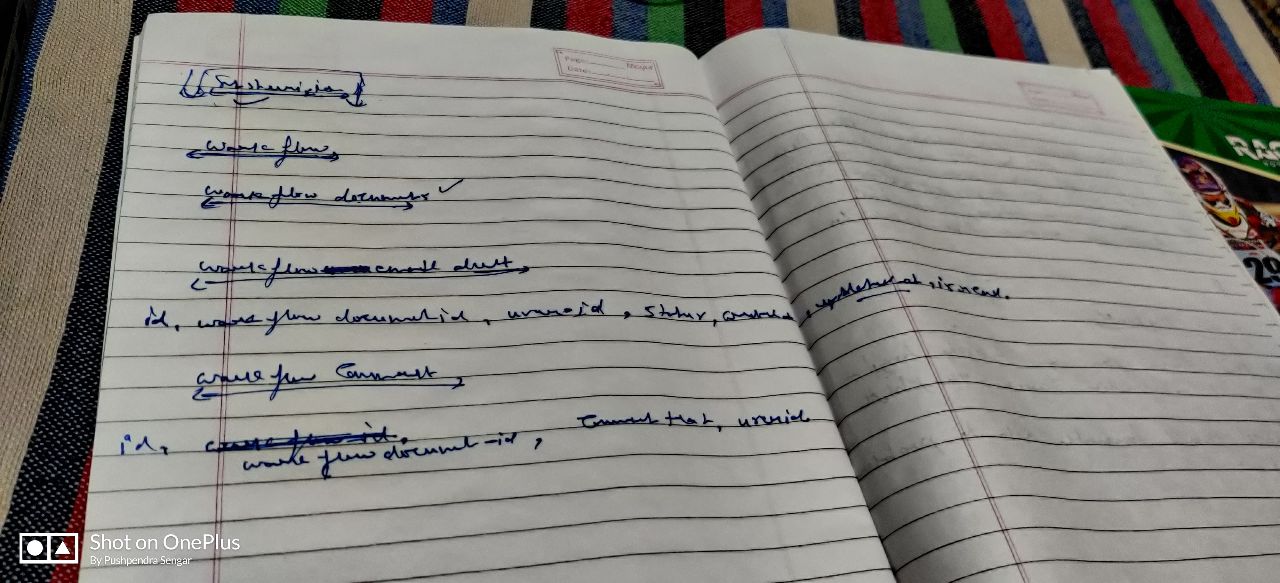 Page:
Date:
work flow
work flow documents ✓
work flow email draft
id, work flow document id, userid, status, created, updated at, is read.
work flow Comment
id, work flow id,
work flow document-id, Comment text, userid
RAC
29
Shot on OnePlus
By Pushpendra Sengar